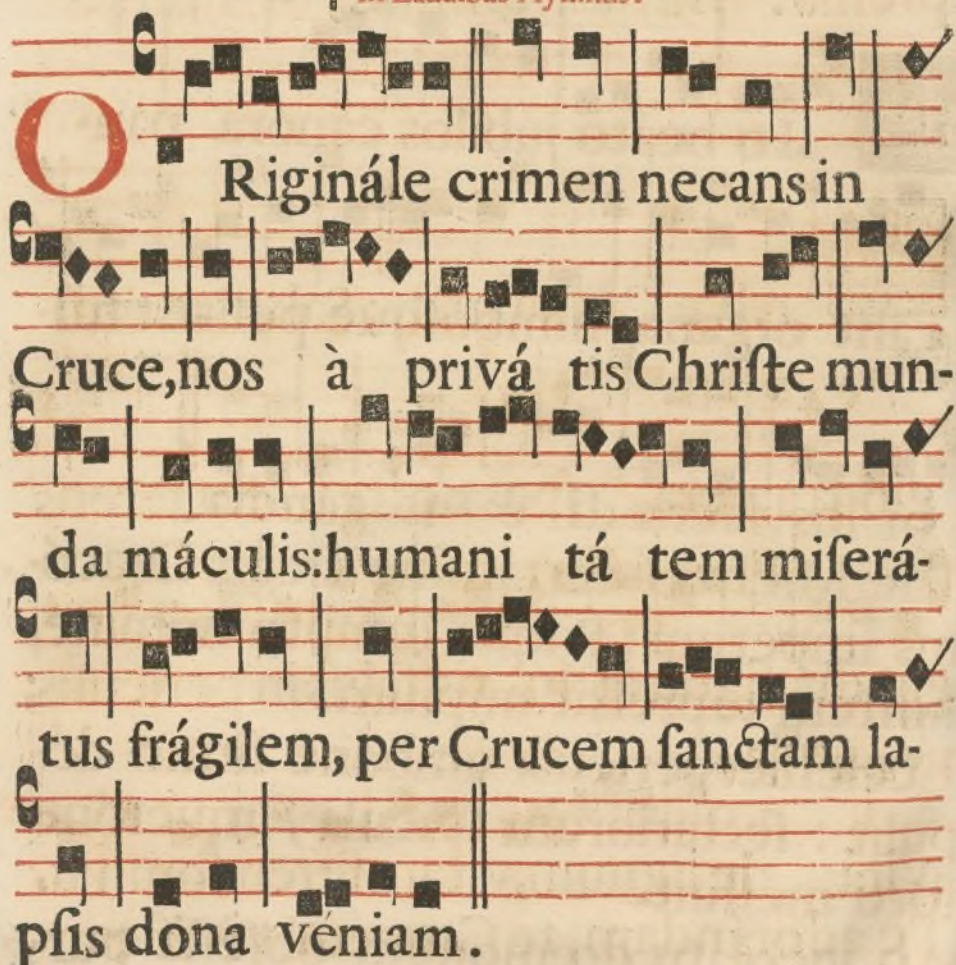 In Laudibus Hymnus.
ORiginále crimen necans in
Cruce, nos à privá tis Chriſte mun-
da máculis: humani tá tem miſerá-
tus frágilem, per Crucem ſanctam la-
pſis dona véniam.